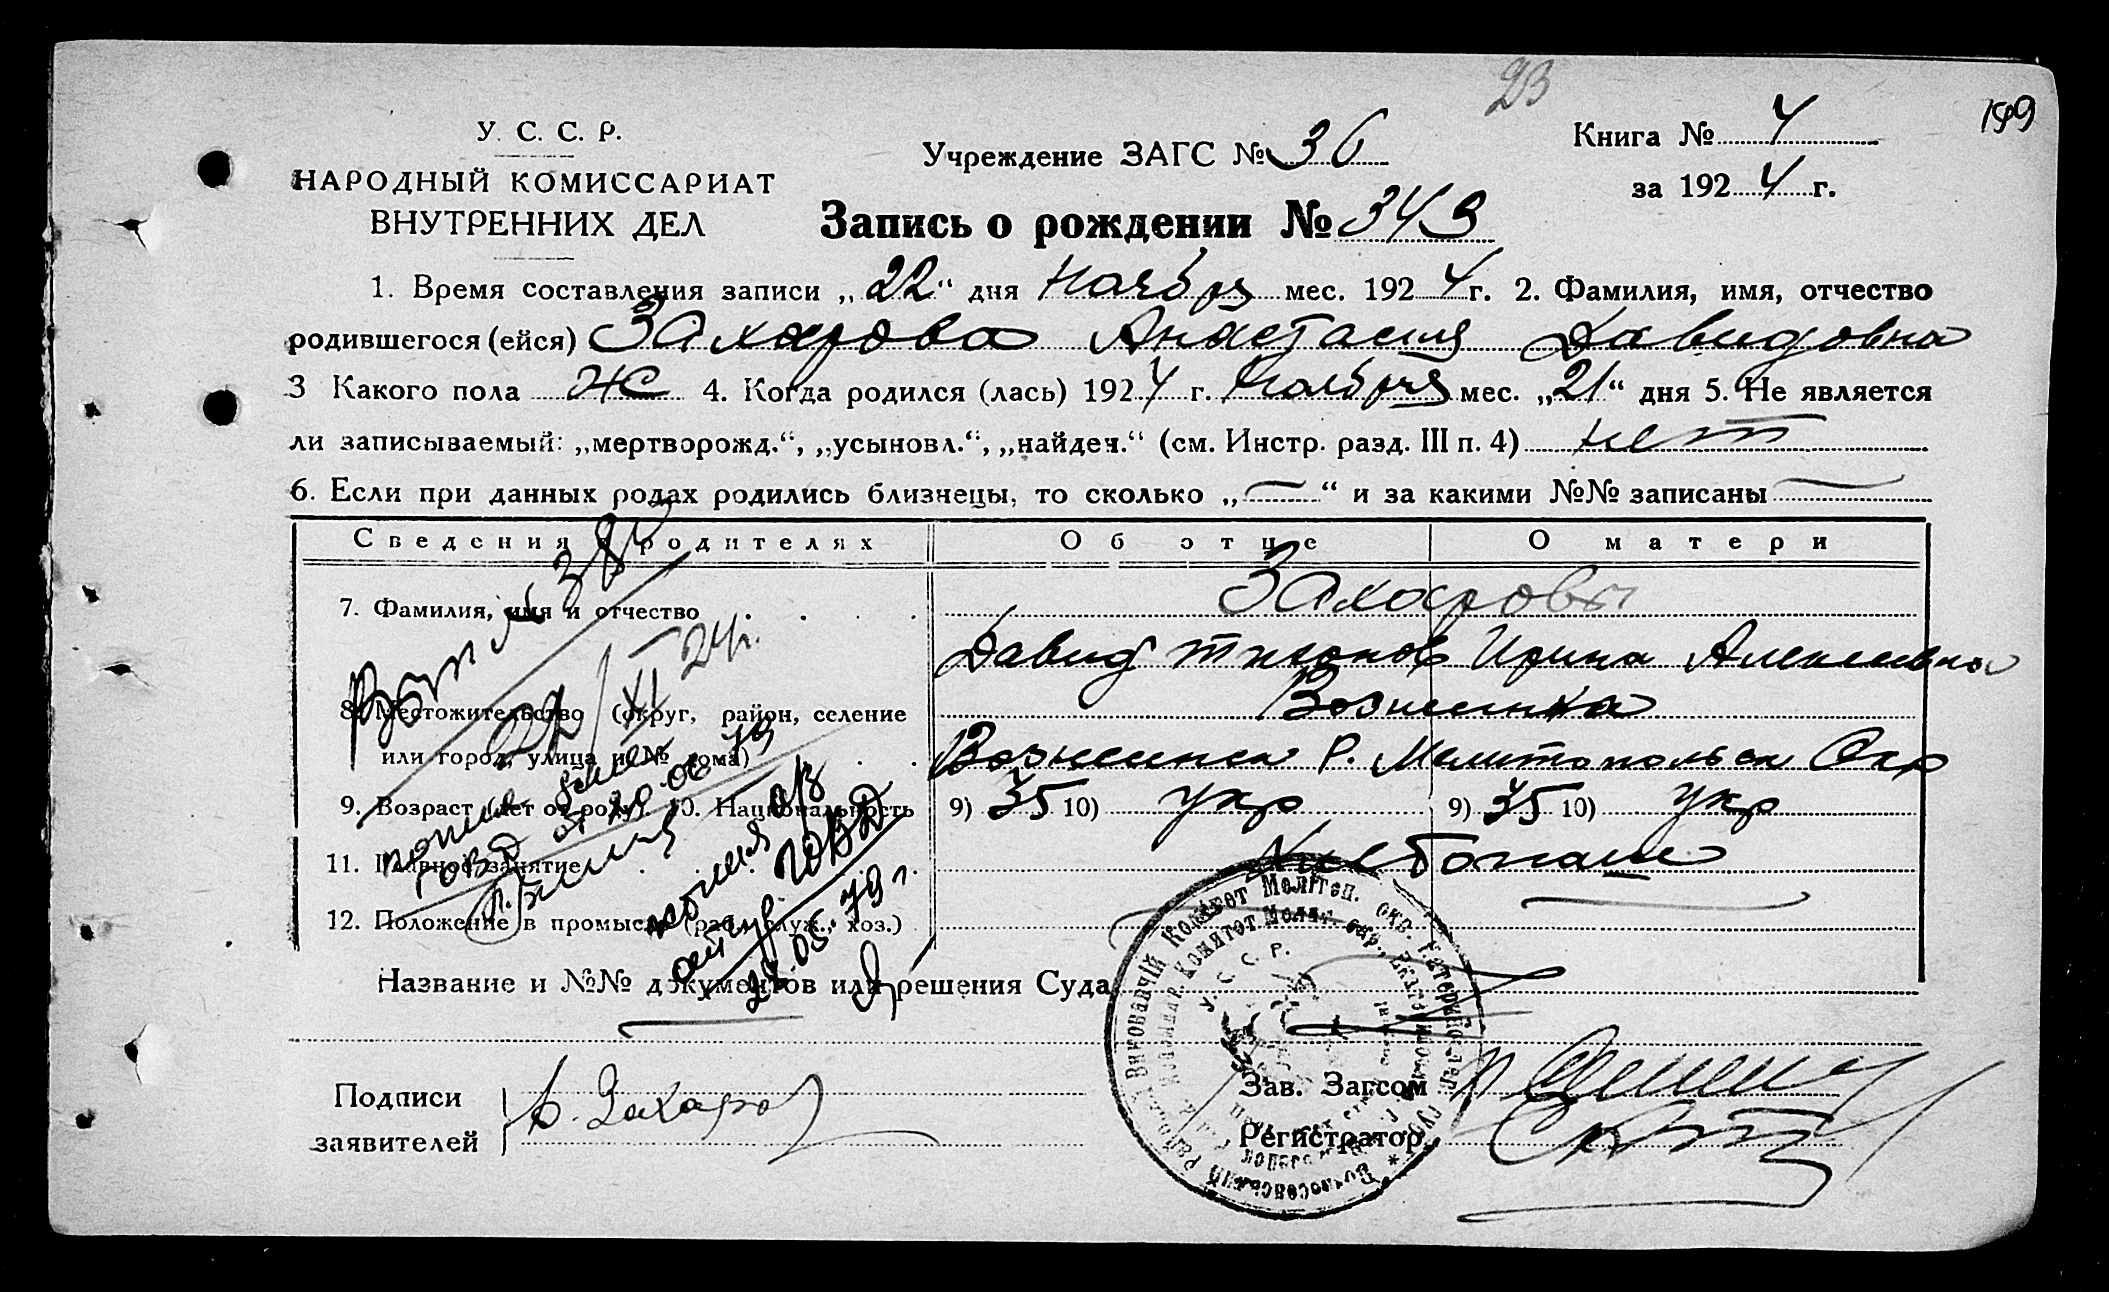 23
199
У. С. С. Р.
НАРОДНЫЙ КОМИССАРИАТ
ВНУТРЕННИХ ДЕЛ
Учреждение ЗАГС № 36
Книга № 4
за 1924 г.
Запись о рождении № 349
1. Время составления записи „22“ дня Ноября мес. 1924 г. 2. Фамилия, имя, отчество
родившегося (ейся) Захарова Анастасия Давидовна
3 Какого пола ж 4. Когда родился (лась) 1924 г. Ноября мес. „21“ дня 5. Не является
ли записываемый: „мертворожд.“, „усыновл.“, „найден.“ (см. Инстр. разд. III п. 4) нет
6. Если при данных родах родились близнецы, то сколько „—“ и за какими №№ записаны —
Сведения о родителях Об отце О матери
7. Фамилия, имя и отчество Захаровы
Давид Ирина Алексеевна
8. Местожительство (округ, район, селение
или город, улица и № дома) Р. Мелитопольск Окр
9. Возраст (лет от роду) 10. Национальность 9) 35 10) укр 9) 35 10) укр
11. Главное занятие Хлебопаш
12. Положение в промысле (раб., служ., хоз.)
№ 382
22/XI 24 г.
копия
ГОВД от 20.06 79
копия о/в
ГОВД
28.05.79 г.
Название и №№ документов или решения Суда
У. С. С. Р.
Подписи
заявителей
Д. Захаров
Зав. Загсом
Регистратор